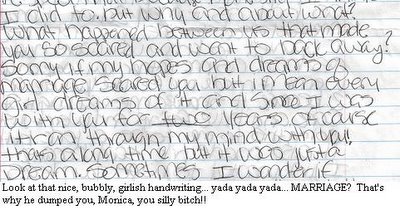 did to. but why and about what?
What happened between us that made
you so scared and want to back away?
Sorry if my hopes and dreams of
marriage scared you but I mean every
girl dreams of it and since I was
with you for two years of cause
it ran through my mind with you.
thats along time but it was just a
Dream. Sometimes I wander if
Look at that nice, bubbly, girlish handwriting... yada yada yada... MARRIAGE?  That's
why he dumped you, Monica, you silly bitch!!